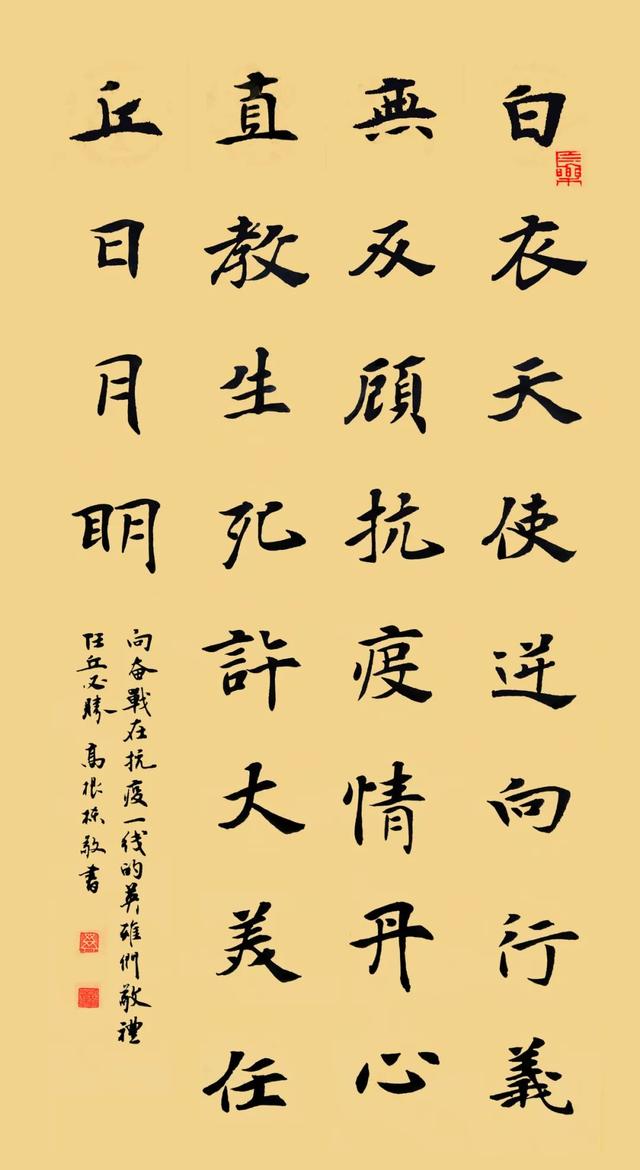 白衣天使逆向行義
無反顧抗疫情丹心
直教生死許大美任
丘日月明
向奋戰在抗疫一线的英雄們敬禮
任丘必勝 高根栋敬書